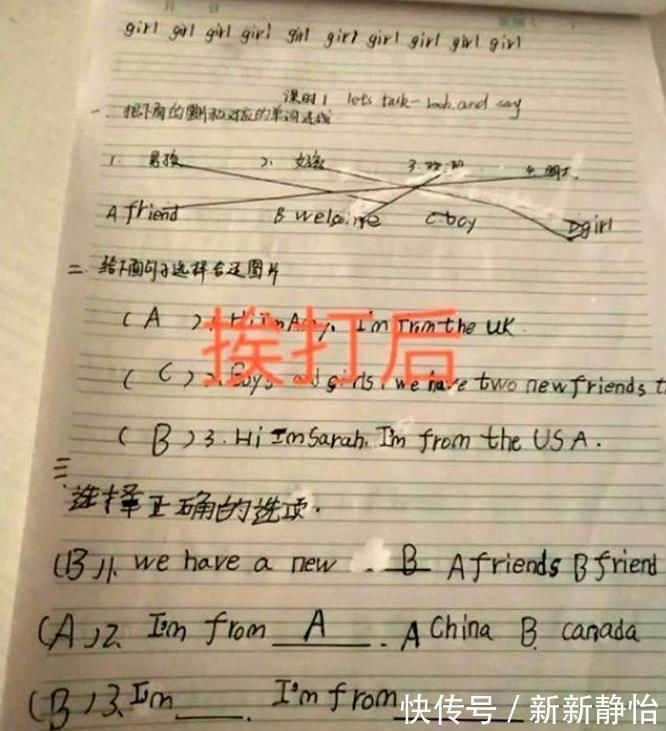 girl girl girl girl girl girl girl girl girl girl
课时1 let's talk-look and say
一、把下面的图片和对应的单词连线
1. 男孩 2. 女孩 3. 欢迎 4. 朋友
A friend B welcome C boy D girl
二、给下面句子选择合适图片
(A)1. Hi I'm Amy. I'm from the UK.
(C)2. Boys and girls, we have two new friends t
(B)3. Hi I'm Sarah. I'm from the USA.
三
选择正确的选项.
(B)1. we have a new B A friends B friend
(A)2. I'm from A. A China B. canada
(B)3. I'm ___. I'm from
挨打后
快传号 / 新新静怡